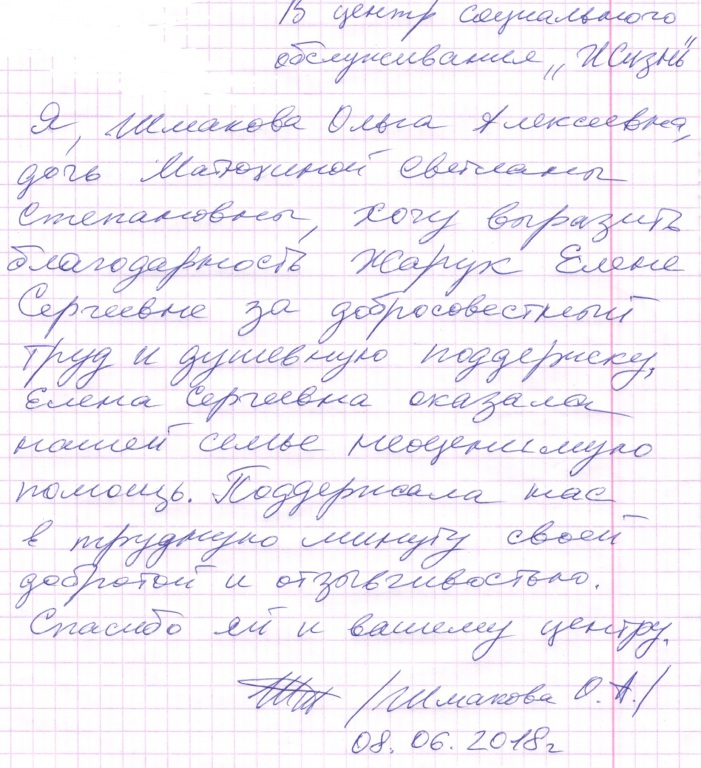 В центр социального
обслуживания „Жизнь"
Я, Шмакова Ольга Алексеевна,
дочь Матюхиной Светланы
Степановны, хочу выразить
благодарность Жарук Елене
Сергеевне за добросовестный
труд и душевную поддержку,
Елена Сергеевна оказала
нашей семье неоценимую
помощь. Поддержала нас
в трудную минуту своей
добротой и отзывчивостью.
Спасибо ей и вашему центру.
/Шмакова О.А./
08.06.2018г